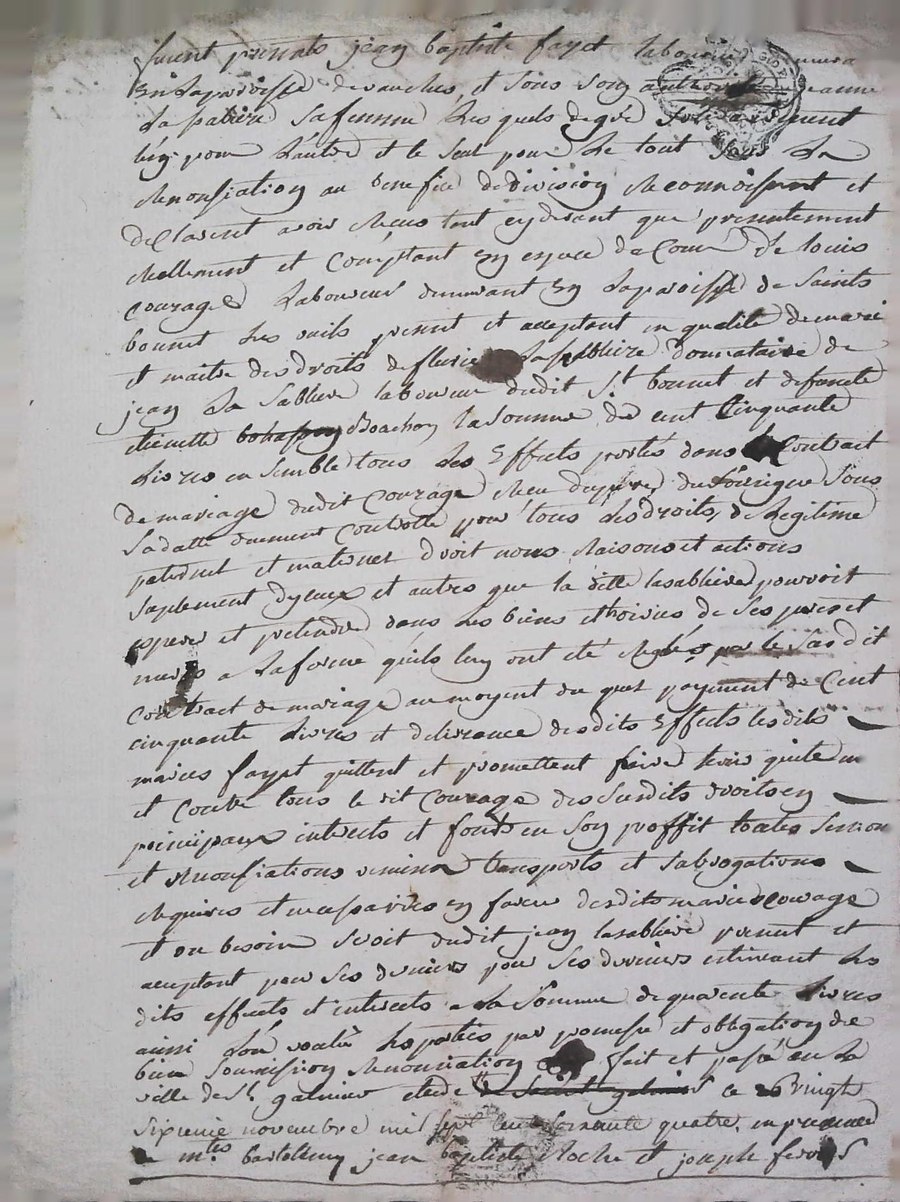 furent presents jean baptiste fayet laboureur
En la paroisse de vauches, et sous son authorité jeanne
La sabliere sa femme Lesquels de gré solidairement
l'un pour Lautre et le seul pour Le tout sous La
Renonsiation au benefice de division Reconnoissent et
declarent avoir Receu tout cydevant que presentement
Reellement et Comptant en espece de Cour de louis
courage Laboureur demeurant En La paroisse de Saints
bonnet Les ouils present et acceptant en qualité de mari
et maitre des droits de fleurie La sabliere donnataire de
jean La Sabliere laboureur dudit St bonnet et defuncte
etienette Boachon la Somme de cent Cinquante
Livres en semble tous Les Effects portés dans Le Contract
de mariage dudit Courage Receu du Soussigné Sous
Sa datte duement Controllé pour tous Les droits, de Legitime
paternel et maternel droit noms Raisons et actions
Suplement dyceux et autres que la ditte lasabliere pouvoit
esperer et pretendre dans Les biens et hoiries de Ses peres et
meres a La forme quils luy ont été Reglés par le Susdit
Contract de mariage au moyent du quel payement de Cent
cinquante Livres et delivrance desdits Effects lesdits
mariés fayet quittent et promettent faire tenir quitte en
et Contre tous le dit Courage des Susdits droits en
principaux interests et font en Son proffit toutes
et renonsiations transports et Subrogations
Requises et necessaires en faveur desdits mariés courage
et ou besoin Seroit dudit jean lasabliere present et
acceptant pour Ses derniers pour Ses derniers estimant Les
dits effects et interests a La Somme de quarente Livres
ainsi Lon voulu Les parties par promesse et obligation de
bien Soumission Renonciation fait et passé en La
ville de St galmier etude ce Vingt
Sixieme novembre mil Sept cent soixante quatre, en presence
de mtres bartelemy jean baptiste Roche et joseph